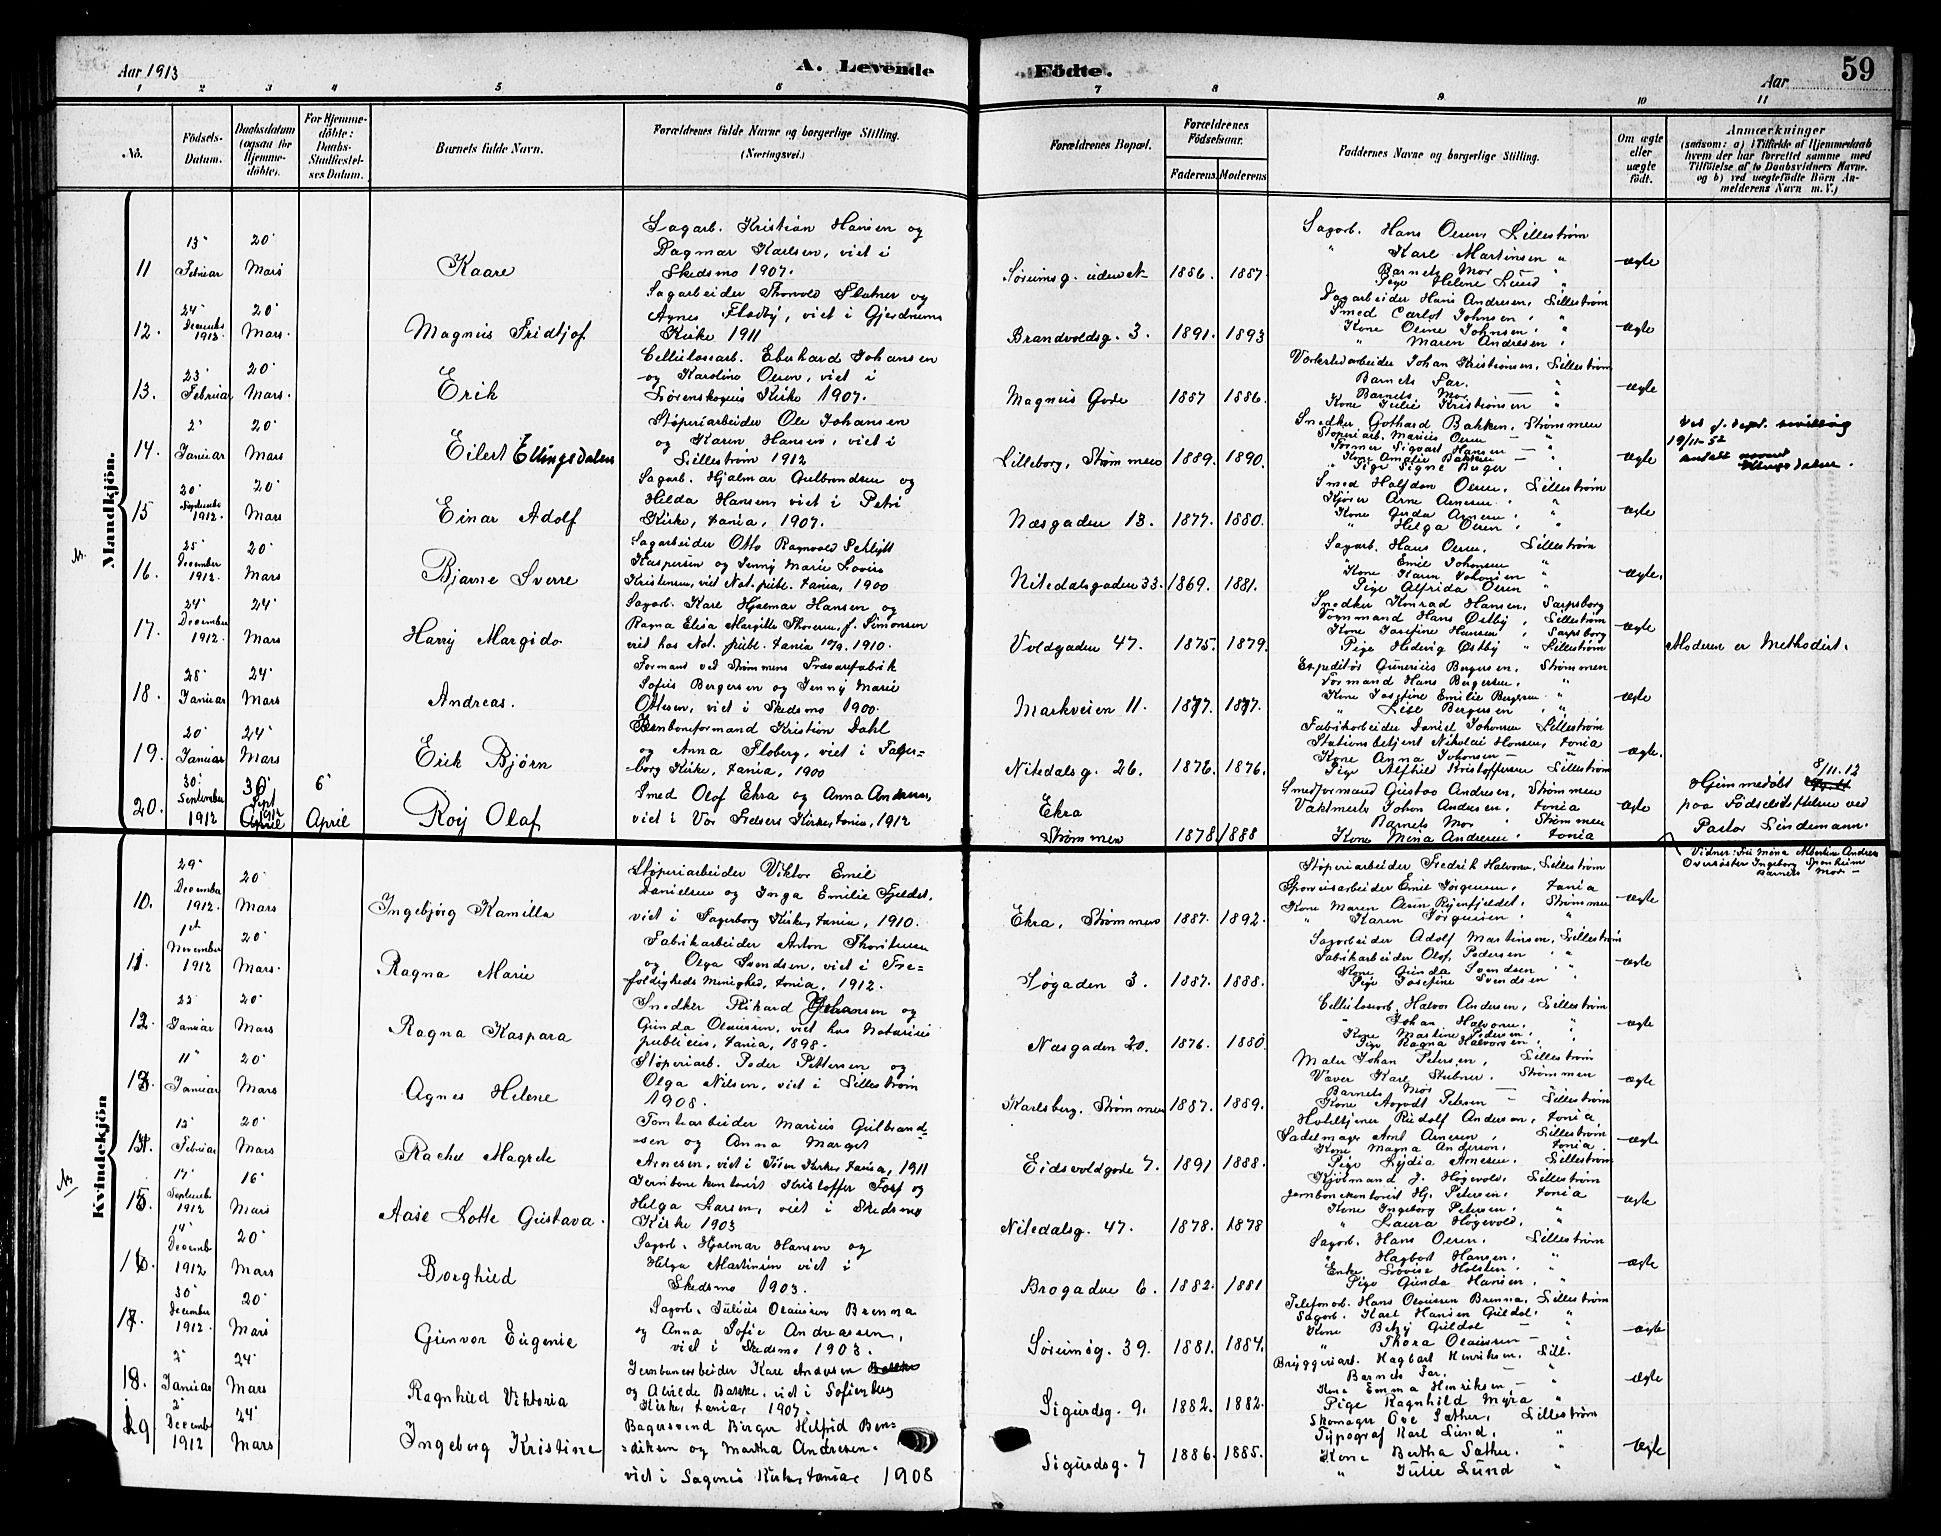 Aar 1913
A. Levende Födte.
Aar
59
1 2 3 4 5 6 7 8 9 10 11
No.
Födsels-Datum.
Daabsdatum (ogsaa for Hjemmedöbte).
For Hjemmedöbte: Daabs-Stadfæstelses Datum.
Barnets fulde Navn.
Forældrenes fulde Navne og borgerlige Stilling. (Næringsvei.)
Forældrenes Bopæl.
Forældrenes Födselsaar.
Faderens. Moderens
Faddernes Navne og borgerlige Stilling.
Om ægte eller uægte födt.
Anmærkninger
(saasom: a) i Tilfælde af Hjemmedaab
hvem der har forrettet samme med
Tilföielse af to Daabsvidners Navne.
og b) ved uægtefödte Börn An-
melderens Navn m. V.)
Mandkjön.
11 13' Februar 20' Mars Kaare
Sagarb. Kristian Hansen og
Dagmar Karlsen, viet i
Skedsmo 1907.
Sørumsg. uden N- 1886. 1887.
Sagarb. Hans Olsen, Lillestrøm
" Karl Martinsen "
Barnets Mor — "
Pige Helene Lund "
ægte
12. 24' Decembr 1912. 20' Mars. Magnus Fridtjof
Sagarbeider Thorvald Slatner og
Agnes Fladby, viet i Gjerdrums
Kirke 1911
Brandvoldsg. 3. 1891. 1893
Sagarbeider Hans Andresen, Lillestrøm
Smed Carlot Johnsen, "
Kone Oline Johnsen, "
" Maren Andresen, "
ægte
13. 23' Februar 20' Mars. Erik
Cellulosearb. Eberhard Johansen
og Karoline Olsen, viet i
Sørenskogens Kirke 1907.
Magnus Gade 1887 1886.
Verkstedarbeider Johan Kristiansen, Lillestrøm
Barnets Far. "
Barnets Mor — "
Kone Julie Kristiansen "
ægte
14. 2' Januar 20' Mars Eilert Ellingsdalen
Støperiarbeider Ole Johansen
og Karen Hansen, viet i
Lillestrøm 1912
Lilleborg, Strømmen 1889. 1890.
Snedker Gothard Bakken, Strømmen
Støperiarb. Marius Olsen — "
Former Sigvart Hansen — "
Kone Amalie Bakken — "
" Pige Signe Berger "
ægte
Ved j. dept. bevilling
19/11-52
antatt navnet
Ellingsdalen.
15 30' Septembr 1912. 20' Mars Einar Adolf
Sagarb. Hjalmar Gulbrandsen og
Hilda Hansen, viet i Petri
Kirke, Xania, 1907.
Næsgaden 13. 1877. 1880.
Smed Halfdan Olsen, Lillestrøm
Kjører Arne Arnesen, "
Kone Gusta Arnesen, "
" Helga Olsen, "
ægte
16. 25' December 1912. 20' Mars Bjarne Sverre
Sagarbeider Otto Ragnvald Schlytt
Kaspersen og Jenny Marie Lovise
Kristensen, viet Not. publ. Xania, 1900
Nitedalsgaden 33. 1869. 1881.
Sagarb. Hans Olsen. Lillestrøm
" Emil Johansen "
Kone Karen Johansen "
Pige Alfrida Olsen "
ægte.
17. 24' December 1912. 24' Mars Harry Margido
Sagarb. Karl Hjalmar Hansen og
Ragna Elisa Margitte Thoresen, f. Simonsen
viet hos Not. publ. Xania 17/9. 1910.
Voldgaden 47. 1875. 1879.
Snedker Konrad Hansen, Sarpsborg
Vognmand Hans Østby, Lillestrøm
Kone Josefine Hansen, Sarpsborg
Pige Hedvig Østby " Lillestrøm
ægte
Moderen er Methodist.
18. 28' Januar 24' Mars Andreas.
Formand ved Strømmens Trævarefabrik
Sofus Bergersen og Jenny Marie
Ottesen, viet i Skedsmo 1900.
Markveien 11. 1877. 1877.
Expeditør Gunerius Bergersen, Strømmen
Formand Hans Bergersen, "
Kone Josefine Emilie Bergersen "
" Lise Bergersen, "
ægte
19. 20' Januar 24' Mars Erik Bjørn
Jernbaneformand Kristian Dahl
og Anna Floberg, viet i Fager-
borg Kirke, Xania, 1900
Nitedalsg. 26. 1876. 1876.
Fabrikarbeider Daniel Johansen Lillestrøm
Stationsbetjent Nikolai Hansen, Xania
Kone Anna Johansen "
Pige Alfhild Kristoffersen Lillestrøm
ægte.
20. 30' September 1912 30' Sept 1912 April 6' April Roy Olaf
Smed Olaf Ekra og Anna Andersen,
viet i Vor Frelsers Kirke, Xania, 1912
Ekra Strømmen 1878. 1888
Smedformand Gustav Andresen, Strømmen
Vaktmester Johan Andersen, Xania
Barnets Mor, Strømmen
Kone Mina Andresen, Xania
ægte
Hjemmedöbt 8/11. 12
paa Födselsstiftelsen ved
Pastor Lindemann.
Vidner: Fru Mona Albertine Andres
Oversøster Ingeborg Sponheim
Barnets Mor —
Kvindekjön
10. 29' December 1912. 20' Mars Ingebjørg Kamilla
Støperiarbeider Viktor Emil
Danielsen og Inga Emilie Fjeldet,
viet i Fagerborg Kirke, Xania, 1910.
Ekra, Strømmen 1887. 1892.
Støperiarbeider Fredrik Halvorsen, Lillestrøm
Sporveisarbeider Emil Jørgensen, Xania
Kone Maren Olsen Ryenfjeldet, Strømmen
" Karen Jørgensen, "
ægte
11. 1st November 1912 20' Mars. Ragna Marie
Fabrikarbeider Anton Thoritsen
og Olga Svendsen, viet i Tre-
foldigheds Menighed, Xania, 1912.
Søgaden 3. 1887. 1888.
Sagarbeider Adolf Martinsen, Lillestrøm
Fabrikarbeider Olaf Pedersen "
Kone Gunda Svendsen "
Pige Josefine Svendsen "
ægte
12. 22' Januar 20' Mars Ragna Kaspara
Snedker Rikard Johansen og
Gunda Olaussen, viet hos Notarius
publicus, Xania, 1898.
Næsgaden 20. 1876. 1880.
Cellulosearb. Halvor Andersen, Lillestrøm
" Johan Halvorsen, "
Kone Martine Pedersen, "
Pige Ragna Halvorsen, "
ægte
13. 11' Januar 20' Mars Agnes Helene
Støperiarb. Peder Pettersen og
Olga Nilsen, viet i Lillestrøm
1908.
Karlsberg. Strømmen 1887. 1889.
Maler Johan Petersen, Lillestrøm
Væver Karl Stubner. Strømmen
Barnets Mor — "
Kone Aagodt Petersen — Lillestrøm
ægte
14. 12' Februar 20' Mars Rachel Magrete
Tomtearbeider Marius Gulbrand-
sen og Anna Marget
Arnesen, viet i Jøsen Kirke, Xania, 1911
Eidsvoldgade 7. 1891 1888.
Hoteltjener Rudolf Anderson, Xania
Sadelmager Arnt Arnesen, Lillestrøm
Kone Magna Anderson, Xania
Pige Lydia Arnesen, Lillestrøm
ægte
15. 17' Septembr 1912 16' Mars Aase Lotte Gustava.
Jernbanekontorist Kristoffer Foss og
Helga Larsen, viet i Skedsmo
Kirke 1903
Nitedalsg. 47. 1878. 1878
Kjøbmand J. Høgevold, Lillestrøm
Jernbanekontorist Hj. Petersen, Xania
Kone Ingeborg Petersen, "
" Laura Høgevold, "
ægte
16. 14' Decemb 1912 20' Mars Borghild
Sagarb. Hjalmar Hansen og
Helga Martinsen viet i
Skedsmo 1903.
Brogaden 6. 1882. 1881
Sagarb. Hans Olsen. Lillestrøm
" Hagbart Hansen. "
Enke Lovise Holsten, "
Pige Gunda Hansen, "
ægte
17. 30' December 1912. 20' Mars Gunvor Eugenie
Sagarb. Julius Olaussen Brenna
og Anna Sofie Andreassen,
viet i Skedsmo 1903.
Sørumsg. 39. 1881. 1884.
Telefonarb. Hans Olaussen Brenna, Lillestrøm
Sagarb. Karl Hansen Guldal, "
Kone Betzy Guldal — "
" Thora Olaussen — "
ægte
18. 2' Januar 24' Mars Ragnhild Viktoria
Jernbanearbeider Karl Andersen Bakke
og Alvilde Bakke. viet i Sofienberg
Kirke, Xania, 1907.
Sigurdsg. 9. 1882. 1882.
Bryggeriarb. Hagbart Henriksen, Lill.
Barnets Far. — "
Kone Emma Henriksen, — "
Pige Ragnhild Myra "
ægte
19 2' December 1912 24' Mars Ingeborg Kristine
Bagersvend Birger Helfrid Ben-
diksen og Martha Andresen.
viet i Sagenes Kirke, Xania, 1908
Sigurdsg. 7 1886. 1885.
Skomager Ove Sæther. Lillestrøm
Typograf Karl Lund. "
Kone Bertha Sæther. "
" Julie Lund "
ægte